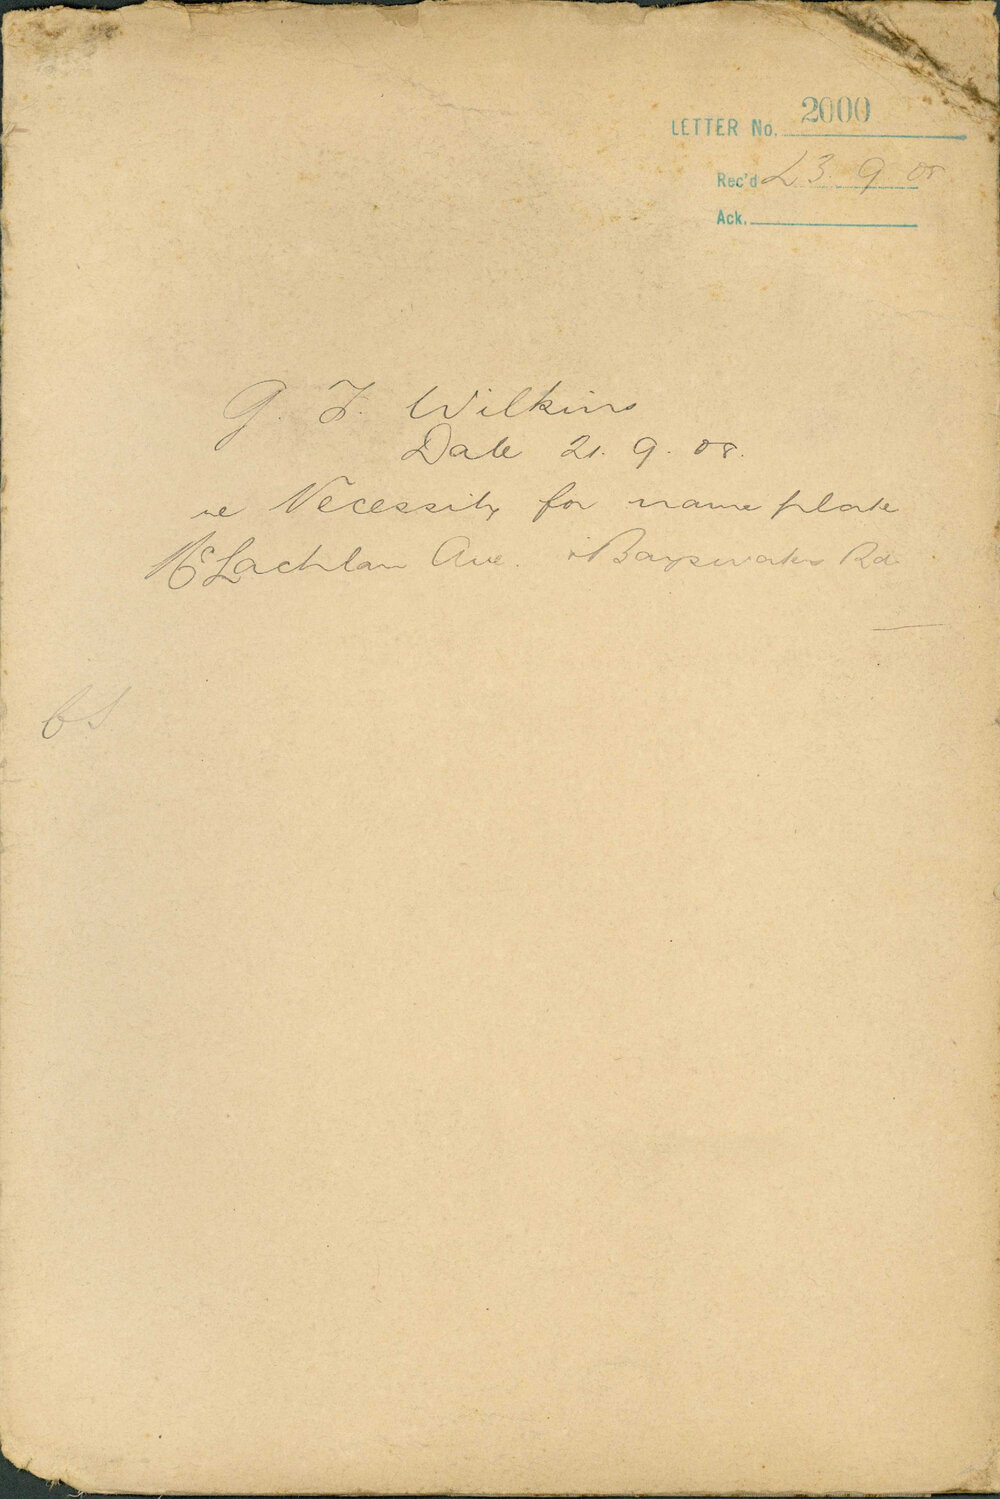 LETTER No. 2000
Rec'd 23. 9 08
Ack.
G. F. Wilkins
Date 21. 9. 08.
re Necessity for name plate
McLachlan Ave. & Bayswater Rd